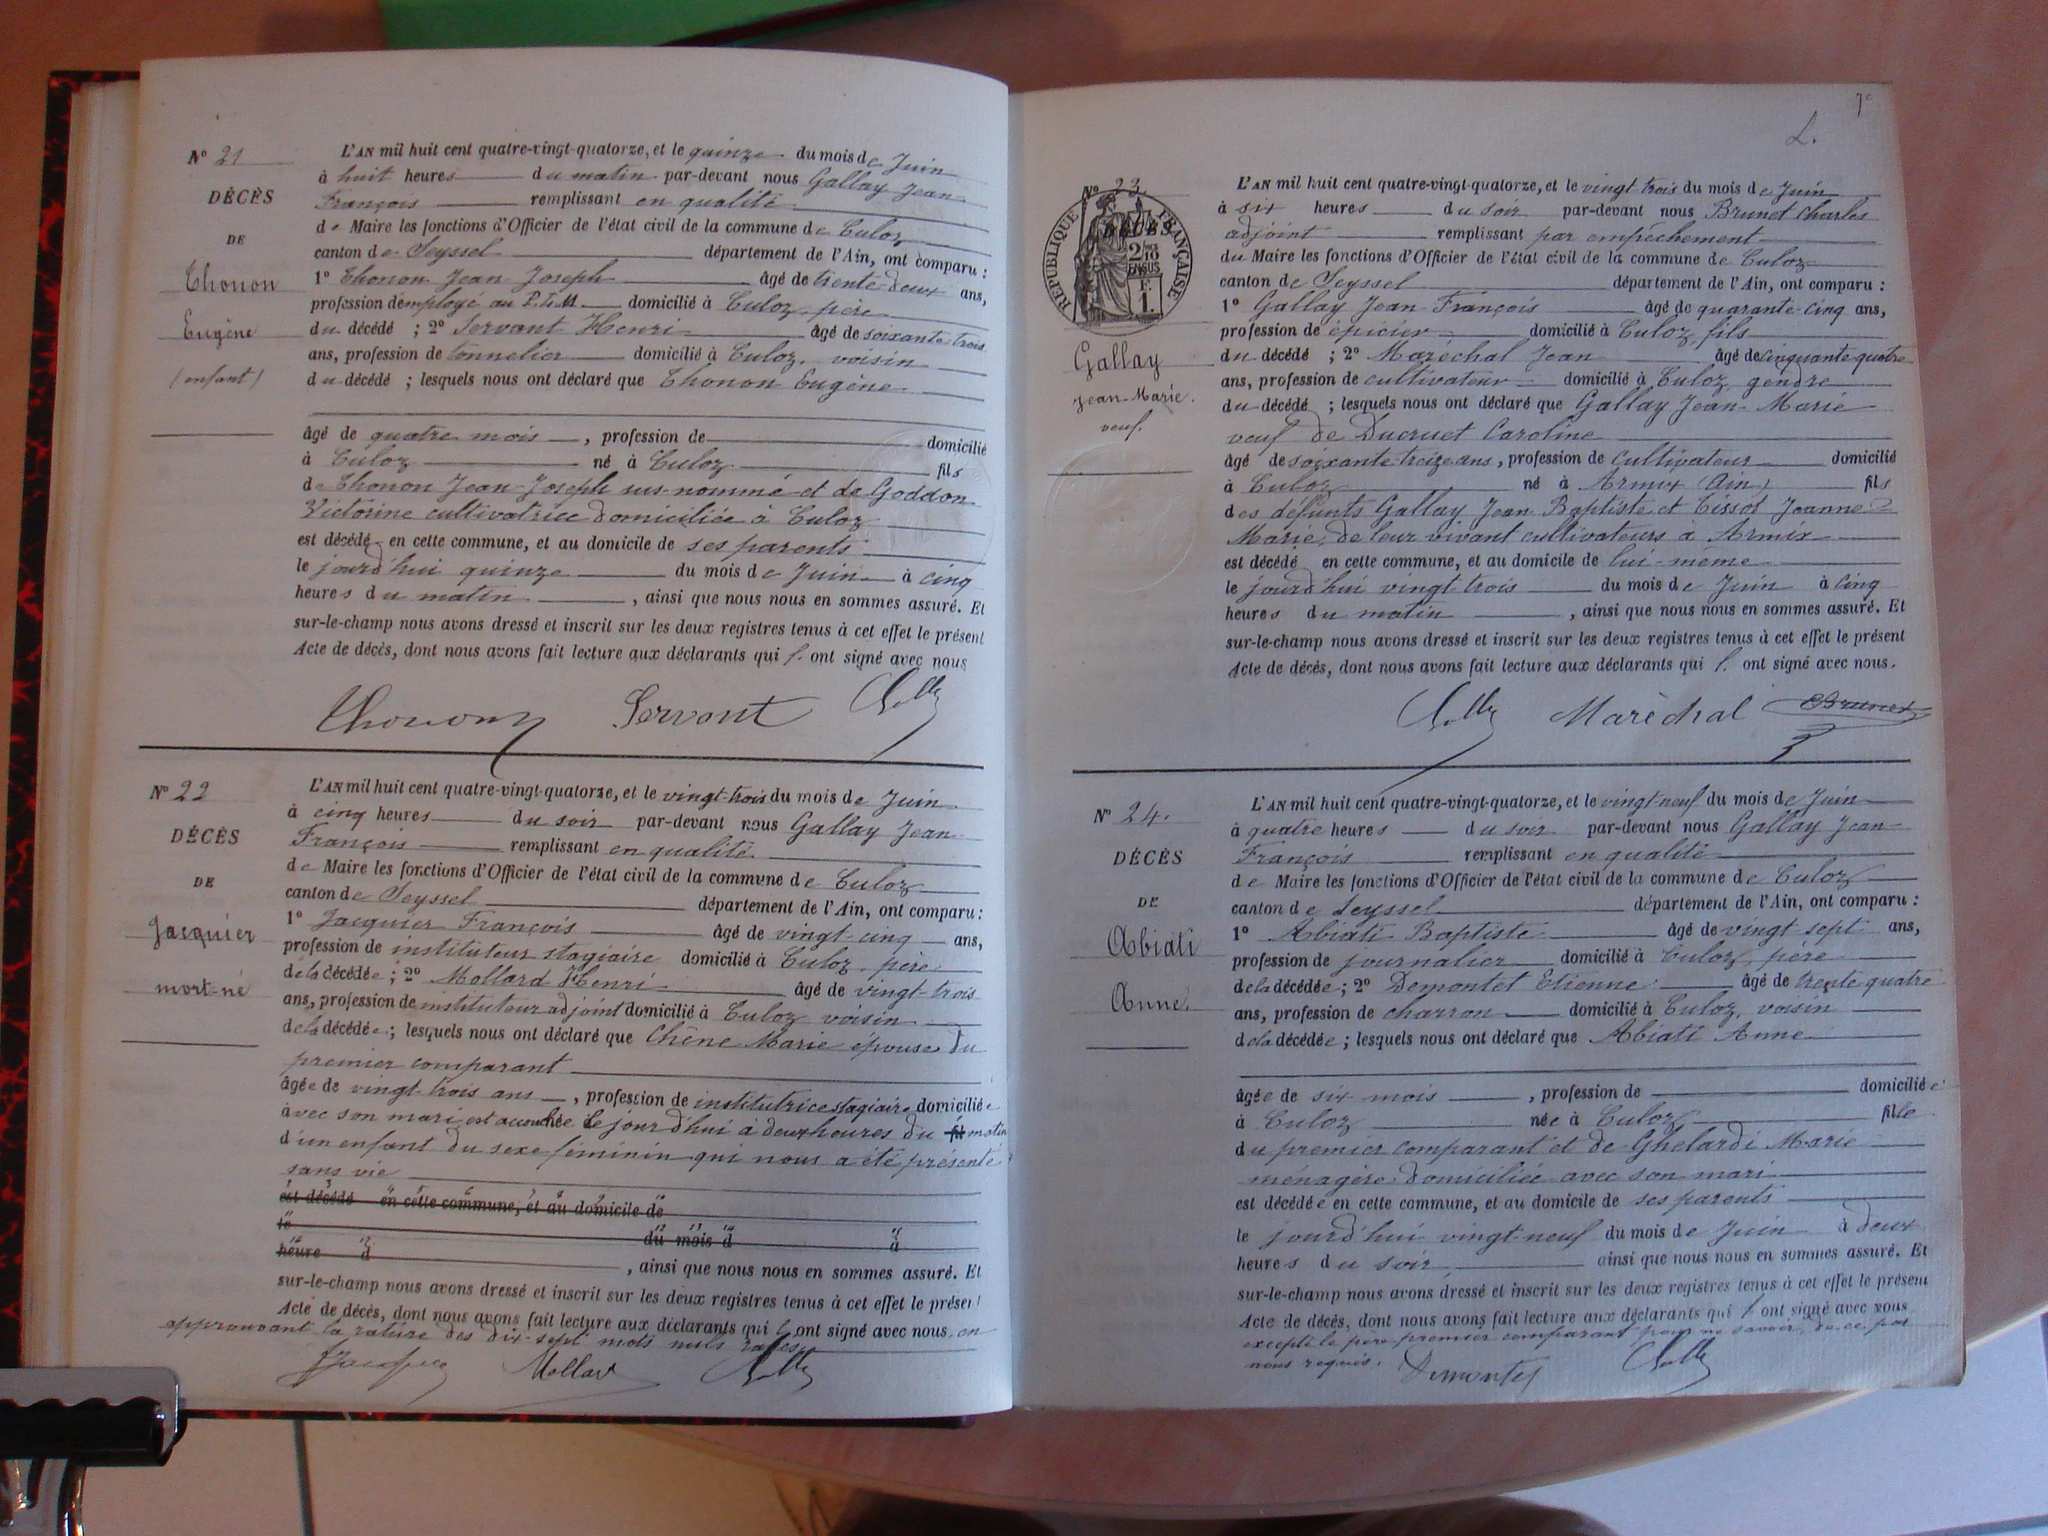 N° 21
DÉCÈS
DE
Thonon
Eugène
(enfant)
L'AN mil huit cent quatre-vingt-quatorze, et le quinze du mois de Juin
à huit heures du matin par-devant nous Gallay Jean
François remplissant en qualité
de Maire les fonctions d'Officier de l'état civil de la commune de Culoz
canton de Seyssel département de l'Ain, ont comparu :
1° Thonon Jean Joseph âgé de trente-deux ans,
profession d'employé au P.L.M domicilié à Culoz, père
du décédé ; 2° Servant Henri âgé de soixante trois
ans, profession de tonnelier domicilié à Culoz, voisin
du décédé ; lesquels nous ont déclaré que Thonon Eugène
âgé de quatre mois, profession de domicilié
à Culoz né à Culoz fils
de Thonon Jean-Joseph sus-nommé et de Goddon
Victorine cultivatrice domiciliée à Culoz
est décédé en cette commune, et au domicile de ses parents
le jourd'hui quinze du mois de Juin à cinq
heures du matin, ainsi que nous nous en sommes assuré. Et
sur-le-champ nous avons dressé et inscrit sur les deux registres tenus à cet effet le présent
Acte de décès, dont nous avons fait lecture aux déclarants qui l. ont signé avec nous
Thonon Servant
N° 22
DÉCÈS
DE
Jacquier
mort-né
L'AN mil huit cent quatre-vingt-quatorze, et le vingt-trois du mois de Juin
à cinq heures du soir par-devant nous Gallay Jean
François remplissant en qualité
de Maire les fonctions d'Officier de l'état civil de la commune de Culoz
canton de Seyssel département de l'Ain, ont comparu :
1° Jacquier François âgé de vingt-cinq ans,
profession de instituteur stagiaire domicilié à Culoz, père
de la décédée ; 2° Mollard Henri âgé de vingt-trois
ans, profession de instituteur adjoint domicilié à Culoz voisin
de la décédée ; lesquels nous ont déclaré que Chêne Marie épouse du
premier comparant
âgée de vingt-trois ans, profession de institutrice stagiaire domiciliée
avec son mari est accouchée le jourd'hui à deux heures du matin
d'un enfant du sexe féminin qui nous a été présenté
sans vie
est décédé en cette commune, et au domicile de
le du mois d à
heure d
, ainsi que nous nous en sommes assuré. Et
sur-le-champ nous avons dressé et inscrit sur les deux registres tenus à cet effet le présent
Acte de décès, dont nous avons fait lecture aux déclarants qui l. ont signé avec nous, en
approuvant la rature des dix-sept mots nuls rayés.
Jacquier Mollard
7e
L.
N° 23.
DÉCÈS
RÉPUBLIQUE FRANÇAISE
2/10 EN SUS
1 F.
Gallay
Jean-Marie.
veuf.
L'AN mil huit cent quatre-vingt-quatorze, et le vingt trois du mois de Juin
à six heures du soir par-devant nous Brunet Charles
adjoint remplissant par empêchement
du Maire les fonctions d'Officier de l'état civil de la commune de Culoz
canton de Seyssel département de l'Ain, ont comparu :
1° Gallay Jean François âgé de quarante-cinq ans,
profession de épicier domicilié à Culoz, fils
du décédé ; 2° Maréchal Jean âgé de cinquante quatre
ans, profession de cultivateur domicilié à Culoz, gendre
du décédé ; lesquels nous ont déclaré que Gallay Jean-Marie
veuf de Ducruet Caroline
âgé de soixante-treize ans, profession de cultivateur domicilié
à Culoz né à Armix (Ain) fils
des défunts Gallay Jean Baptiste et Tissot Jeanne
Marie, de leur vivant cultivateurs à Armix
est décédé en cette commune, et au domicile de lui-même
le jourd'hui vingt trois du mois de Juin à cinq
heures du matin, ainsi que nous nous en sommes assuré. Et
sur-le-champ nous avons dressé et inscrit sur les deux registres tenus à cet effet le présent
Acte de décès, dont nous avons fait lecture aux déclarants qui l. ont signé avec nous.
Maréchal CBrunet
N° 24.
DÉCÈS
DE
Abiati
Anne.
L'AN mil huit cent quatre-vingt-quatorze, et le vingt-neuf du mois de Juin
à quatre heures du soir par-devant nous Gallay Jean
François remplissant en qualité
de Maire les fonctions d'Officier de l'état civil de la commune de Culoz
canton de Seyssel département de l'Ain, ont comparu :
1° Abiati Baptiste âgé de vingt sept ans,
profession de journalier domicilié à Culoz, père
de la décédée ; 2° Demontet Etienne âgé de trente quatre
ans, profession de charron domicilié à Culoz, voisin
de la décédée ; lesquels nous ont déclaré que Abiati Anne
âgée de six mois, profession de domiciliée
à Culoz née à Culoz fille
du premier comparant et de Ghelardi Marie
ménagère domiciliée avec son mari
est décédée en cette commune, et au domicile de ses parents
le jourd'hui vingt-neuf du mois de Juin à deux
heures du soir ainsi que nous nous en sommes assuré. Et
sur-le-champ nous avons dressé et inscrit sur les deux registres tenus à cet effet le présent
Acte de décès, dont nous avons fait lecture aux déclarants qui l ont signé avec nous
excepté le père premier comparant pour ne savoir, de ce par
nous requis. Demontet